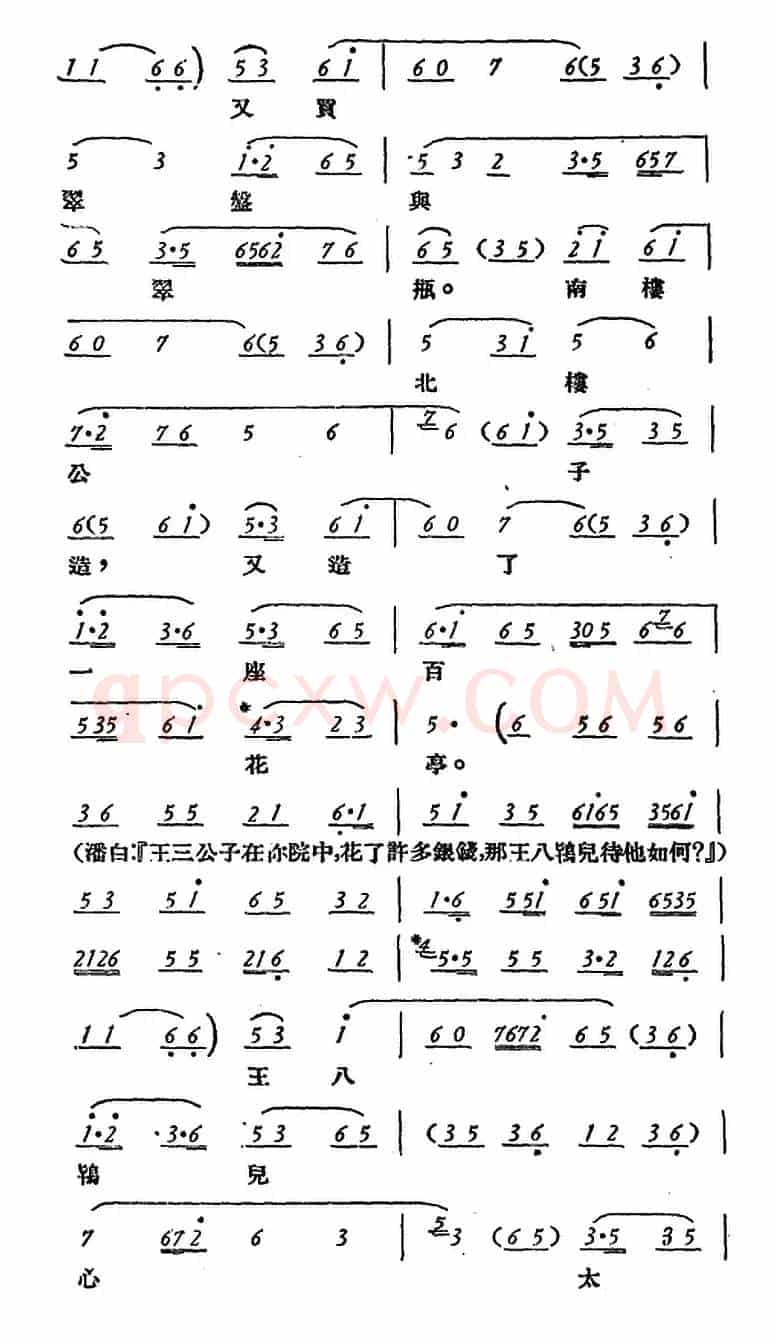 1 1 6 6 ) 5 3 6 i | 6 0 7 6 ( 5 3 6 ) |
又 買
5 3 i·2 6 5 | ·5 3 2 3·5 657 |
翠 盤 與
6 5 3·5 6562 7 6 | 6 5 ( 3 5 ) 2 i 6 i |
翠 瓶。 南 樓
6 0 7 6 ( 5 3 6 ) | 5 3 i 5 6 |
北 樓
7·2 7 6 5 6 | 7 6 ( 6 i ) 3·5 3 5 |
公 子
6 ( 5 6 i ) 5·3 6 i | 6 0 7 6 ( 5 3 6 ) |
造, 又 造 了
i·2 3·6 5·3 6 5 | 6·i 6 5 305 6 7 6 |
一 座 百
535 6 i *4·3 2 3 | 5· ( 6 5 6 5 6 |
花 亭。
qpcxw.COM
3 6 5 5 2 1 6·1 | 5 i 3 5 6i65 356i |
(潘白:『王三公子在你院中,花了許多銀錢,那王八鴇兒待他如何?』)
5 3 5 i 6 5 3 2 | 1·6 55i 65i 6535 |
2126 5 5 216 1 2 | *4 5·5 5 5 3·2 126 |
1 1 6 6 ) 5 3 i | 6 0 7672 6 5 ( 3 6 ) |
王 八
i·2 ·3·6 ·5 3 6 5 | ( 3 5 3 6 1 2 3 6 ) |
鴇 兒
7 672 6 3 | 5 3 ( 6 5 ) 3·5 3 5 |
心 太